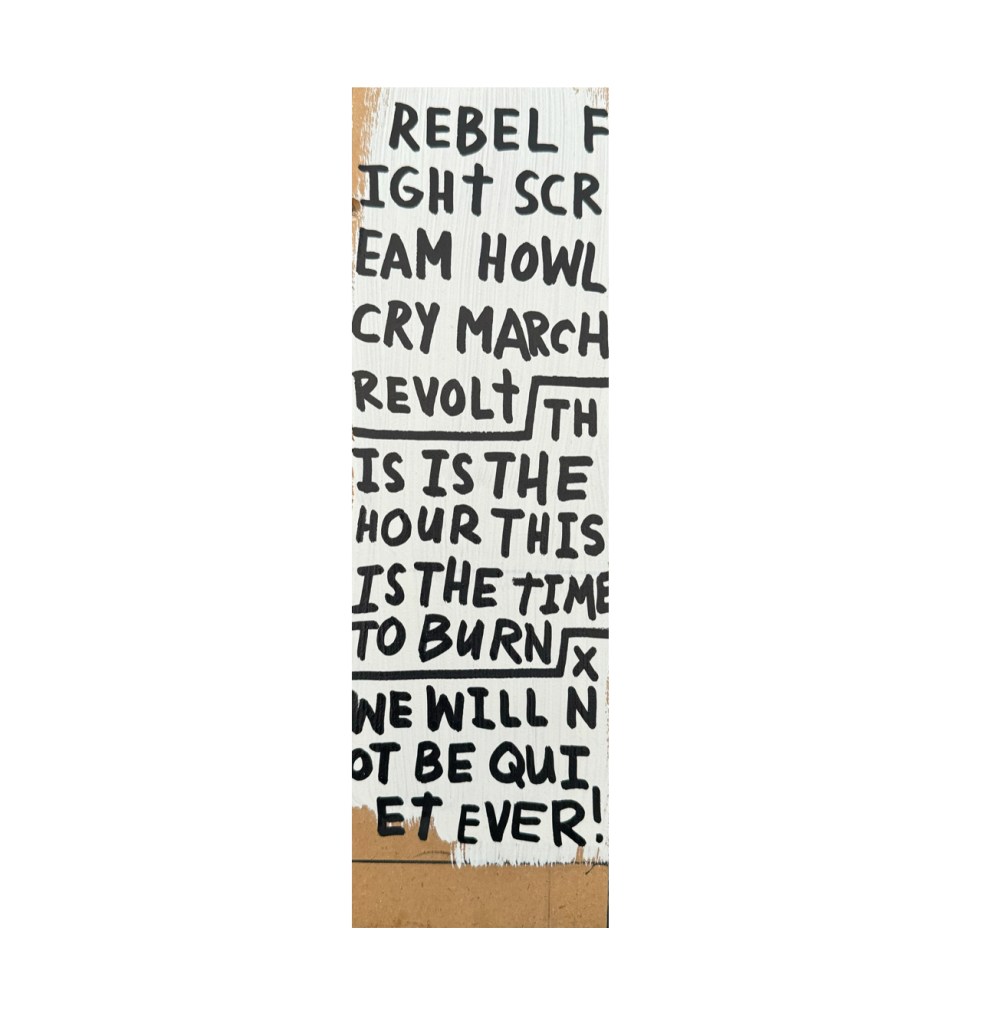 REBEL F
IGHT SCR
EAM HOWL
CRY MARCH
REVOLT TH
IS IS THE
HOUR THIS
IS THE TIME
TO BURN X
WE WILL N
OT BE QUI
ET EVER!